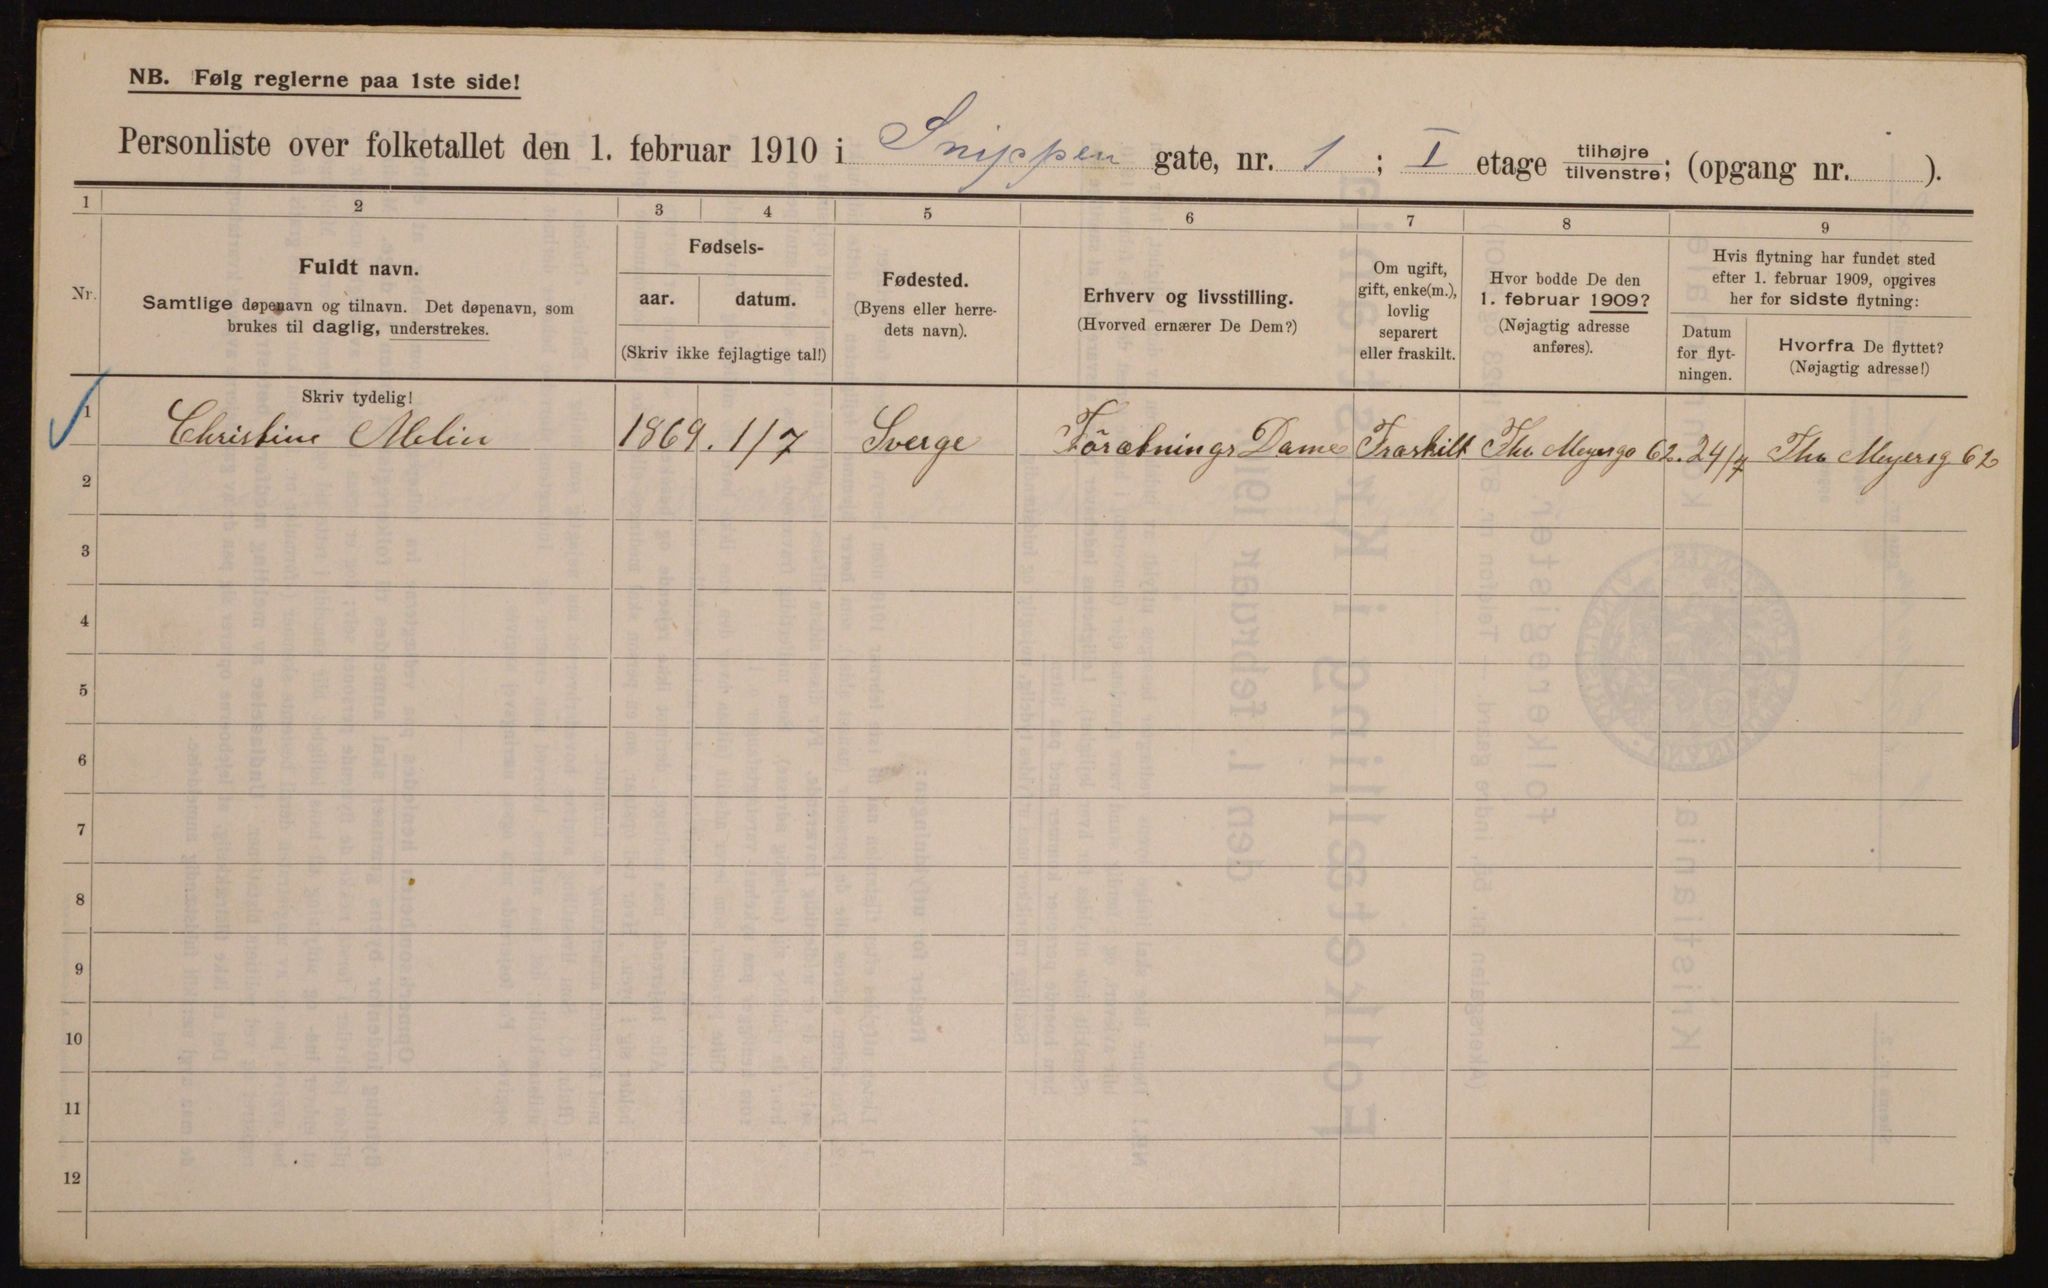 NB. Følg reglerne paa 1ste side!
Personliste over folketallet den 1. februar 1910 i Snippen gate, nr. 1; I etage tilhøjre/tilvenstre; (opgang nr. ).
1 2 3 4 5 6 7 8 9
Nr.
Fuldt navn.
Samtlige døpenavn og tilnavn. Det døpenavn, som
brukes til daglig, understrekes.
Fødsels-
aar. datum.
(Skriv ikke fejlagtige tal!)
Fødested.
(Byens eller herre-
dets navn).
Erhverv og livsstilling.
(Hvorved ernærer De Dem?)
Om ugift,
gift, enke(m.),
lovlig
separert
eller fraskilt.
Hvor bodde De den
1. februar 1909?
(Nøjagtig adresse
anføres).
Hvis flytning har fundet sted
efter 1. februar 1909, opgives
her for sidste flytning:
Datum
for flyt-
ningen.
Hvorfra De flyttet?
(Nøjagtig adresse!)
Skriv tydelig!
1 Christine Melin 1869. 1/7 Sverge Forretnings Dame Fraskilt Tho Meyersga 62. 24/7 Tho Meyersg 62
2
3
4
5
6
7
8
9
10
11
12